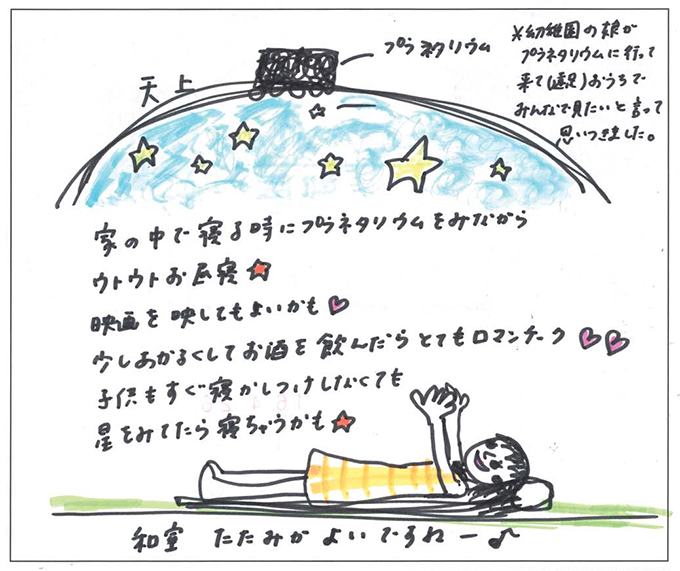 プラネタリウム
天上
*幼稚園の娘が
プラネタリウムに行って
来て(遠足)おうちで
みんなで見たいと言って
思いつきました。
家の中で寝る時にプラネタリウムをみながら
ウトウトお昼寝
映画を映してもよいかも
少しあかるくしてお酒を飲んだらとてもロマンチーク
子供もすぐ寝かしつけしなくても
星をみてたら寝ちゃうかも
和室 たたみがよいですねー♪